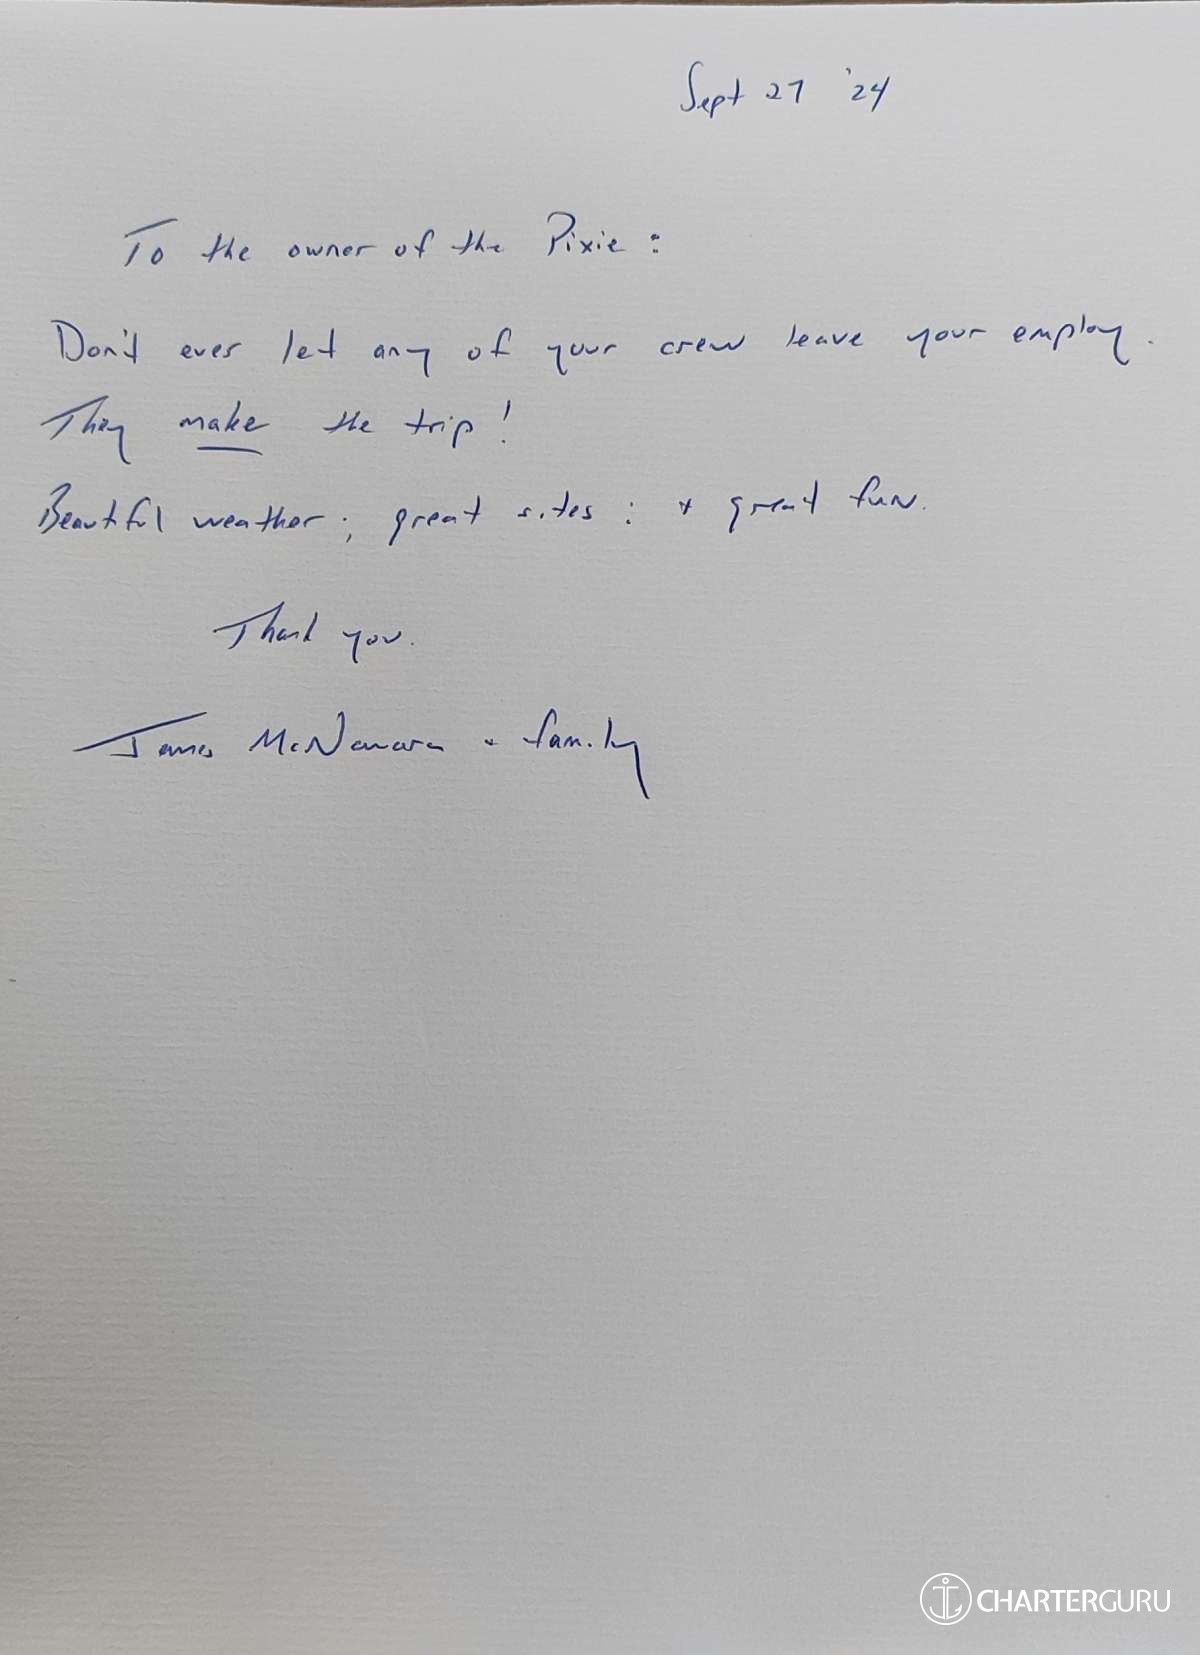 Sept 27 '24
To the owner of the Pixie :
Don't ever let any of your crew leave your employ.
They make the trip!
Beautiful weather; great sites; + great fun.
Thank you.
James McNamara + family
CHARTERGURU